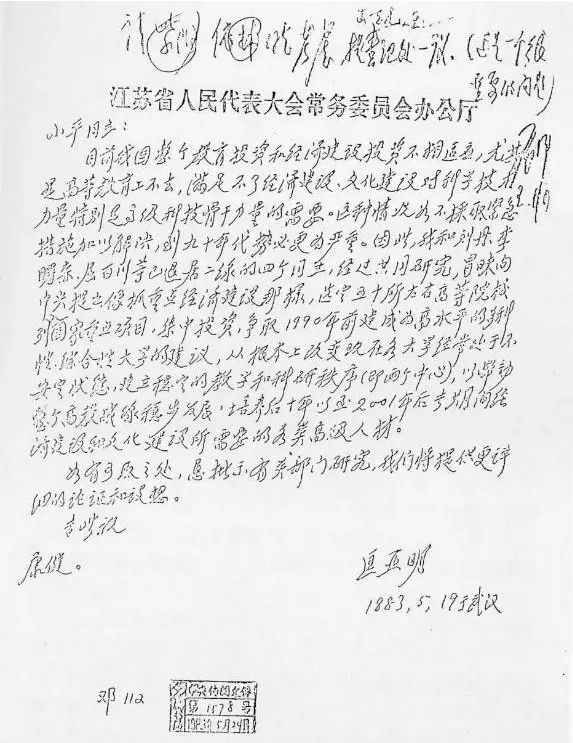 提书记处一议。(这是一个很
重要的问题)
江苏省人民代表大会常务委员会办公厅
小平同志:
目前我国整个教育投资和经济建设投资不相适应,尤其
是高等教育上不去,满足不了经济建设、文化建设对科学技术
力量特别是高级科技骨干力量的需要。这种情况如不採取紧急
措施加以解决,到九十年代势必更为严重。因此,我和刘丹、李
曙森、屈伯川等已退居二线的四个同志,经过共同研究,冒昧向
中央提出像抓重点经济建设那样,选定五十所左右高等院校
列国家重点项目,集中投资,争取1990年前建成为高水平的多科
性、综合性大学的建议,从根本上改变现在各大学经常处于不
安定状态,建立稳定的教学和科研秩序(即两个中心),以带动
整个高教战线稳步发展,培养后十年以至2001年后 期间经
济建设和文化建设所需要的各类高级人材。
如有可取之处,恳批示有关部门研究,我们将提供更详
细的论证和设想。
康健。
匡亚明
1883,5,19于武汉
邓112
第1578号
1983年5月24日